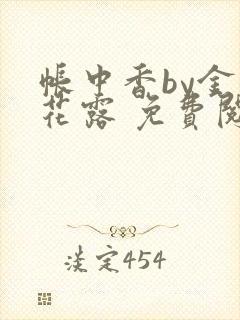 帳中香by金
花露 免費閱
淡定454